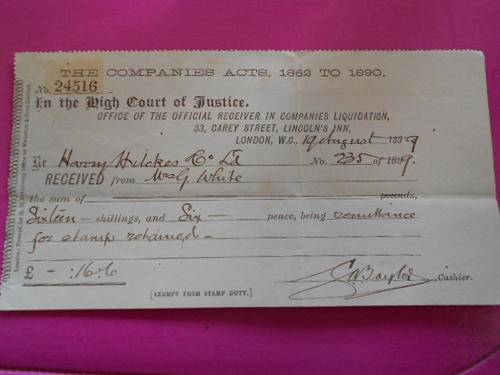 THE COMPANIES ACTS, 1862 TO 1890.
No. 24516
In the High Court of Justice.
OFFICE OF THE OFFICIAL RECEIVER IN COMPANIES LIQUIDATION,
33, CAREY STREET, LINCOLN'S INN,
LONDON, W.C., 19 August 1899
Re Harry Hilckes Co Ld No. 235 of 1899.
RECEIVED from Mrs G. White
the sum of pounds,
Sixteen shillings, and Six pence, being remittance
for stamp retained
£ - : 16 : 6
Taylor Cashier.
[EXEMPT FROM STAMP DUTY.]